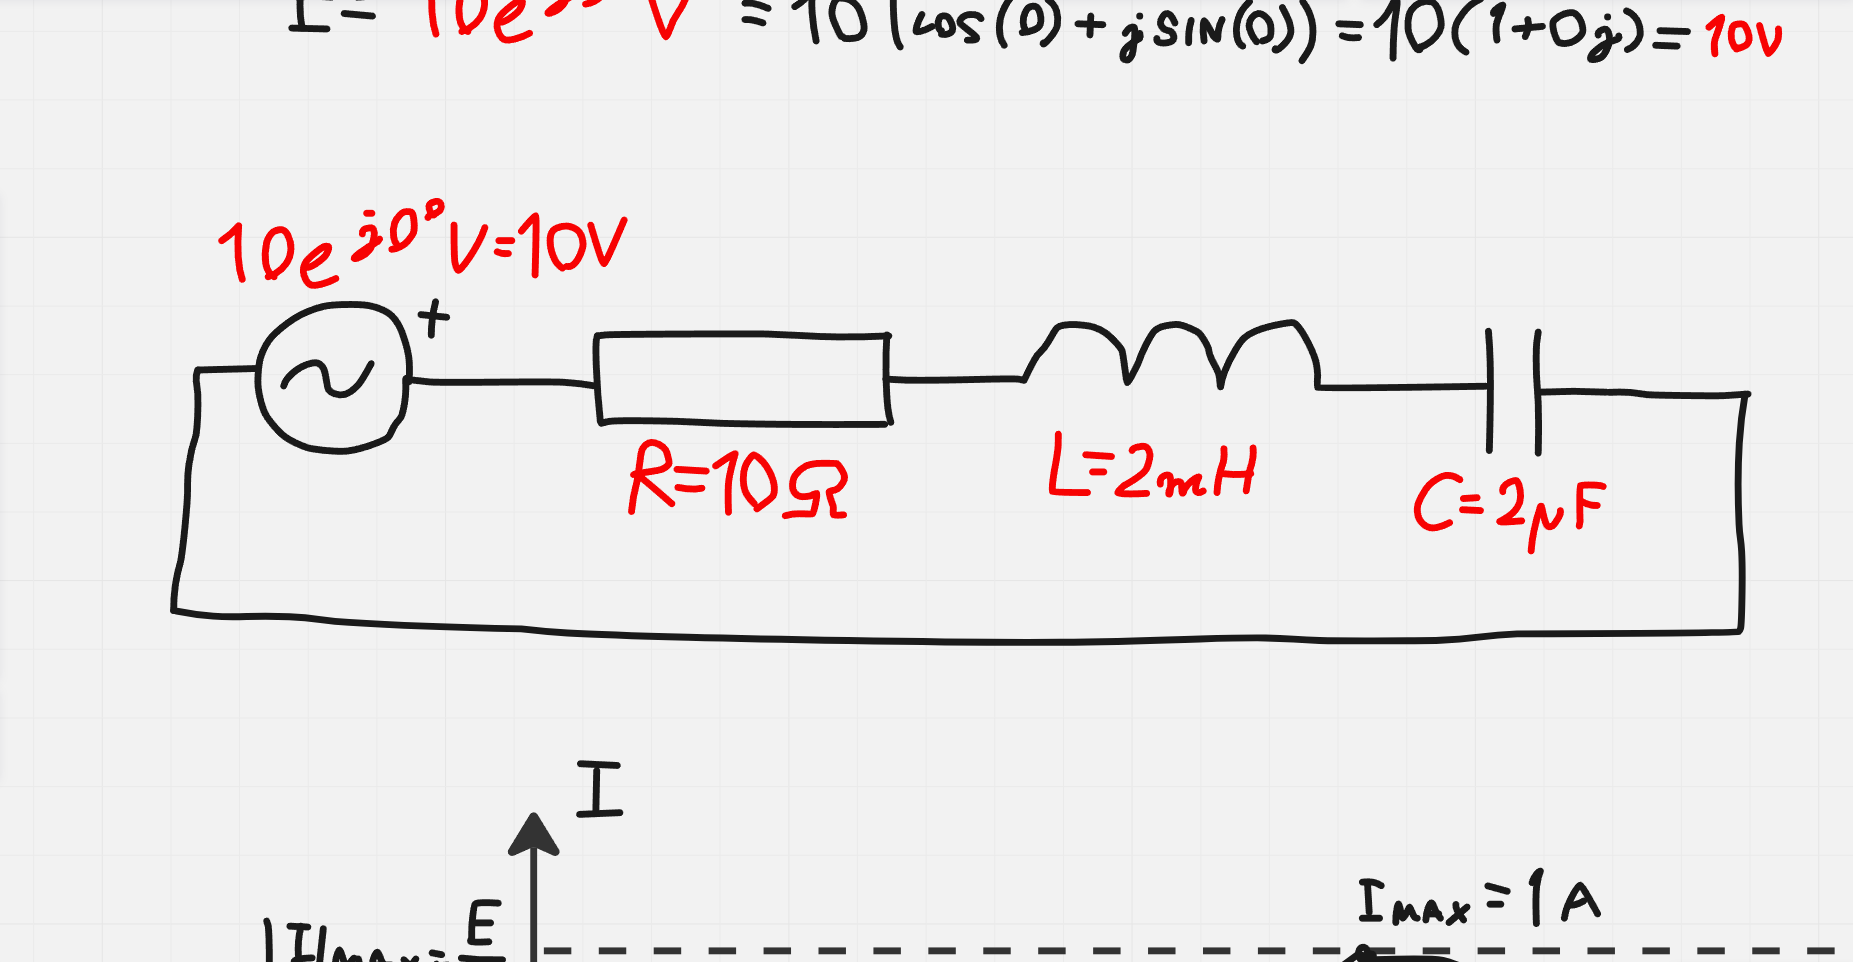 = 10 (cos(0) + j SIN(0)) = 10(1+0j) = 10V
10e^j0° V=10V
+
R=10Ω
L=2mH
C=2μF
I
I MAX = 1 A
E